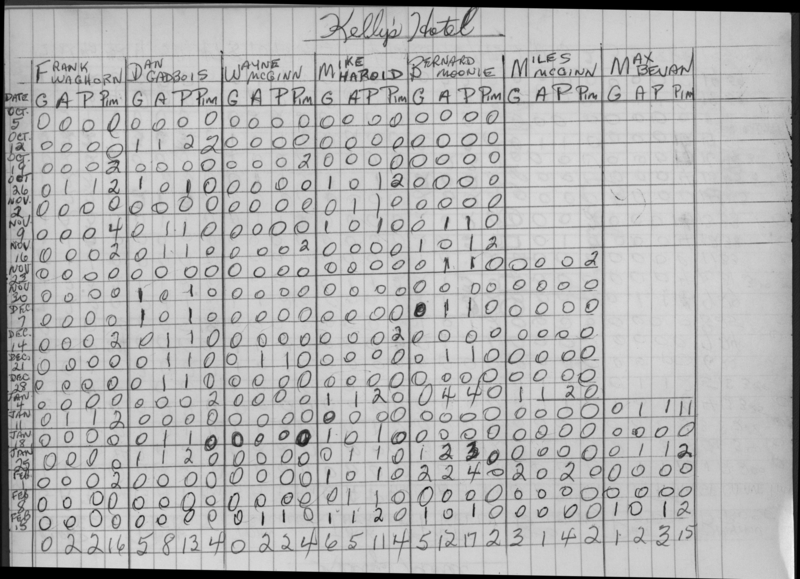 Kelly's Hotel
FRANK WAGHORN DAN GADBOIS WAYNE MCGINN MIKE HAROLD BERNARD MOONIE MILES MCGINN MAX BEVAN
DATE G A P Pim G A P Pim G A P Pim G A P Pim G A P Pim G A P Pim G A P Pim
OCT. 5 0 0 0 0 0 0 0 0 0 0 0 0 0 0 0 0 0 0 0 0
OCT. 12 0 0 0 0 1 1 2 2 0 0 0 0 0 0 0 0 0 0 0 0
OCT. 19 0 0 0 2 0 0 0 0 0 0 0 2 0 0 0 0 0 0 0 0
OCT 26 0 1 1 2 1 0 1 0 0 0 0 0 1 0 1 2 0 0 0 0
NOV. 2 0 0 0 0 0 0 0 0 0 0 0 0 0 1 1 0 0 0 0 0
NOV 9 0 0 0 4 0 1 1 0 0 0 0 0 1 0 1 0 0 1 1 0
NOV 16 0 0 0 2 0 1 1 0 0 0 0 2 0 0 0 0 1 0 1 2
NOV 23 0 0 0 0 0 0 0 0 0 0 0 0 0 0 0 0 0 1 1 0 0 0 0 2
NOV 30 0 0 0 0 1 0 1 0 0 0 0 0 0 0 0 0 0 0 0 0 0 0 0 0
DEC 7 0 0 0 0 1 0 1 0 0 0 0 0 0 0 0 0 0 1 1 0 0 0 0 0
DEC. 14 0 0 0 2 0 1 1 0 0 0 0 0 0 0 0 2 0 0 0 0 0 0 0 0
DEC. 21 0 0 0 0 0 1 1 0 0 1 1 0 0 0 0 0 0 1 1 0 0 0 0 0
DEC 28 0 0 0 0 0 1 1 0 0 0 0 0 0 0 0 0 0 0 0 0 0 0 0 0
JAN 4 0 0 0 0 0 0 0 2 0 0 0 0 1 1 2 0 0 4 4 0 1 1 2 0
JAN 11 0 1 1 2 0 0 0 0 0 0 0 0 0 0 0 0 0 0 0 0 0 0 0 0 0 1 1 11
JAN 18 0 0 0 0 0 1 1 0 0 0 0 0 1 0 1 0 0 0 0 0 0 0 0 0 0 0 0 0
JAN 25 0 0 0 0 1 1 2 0 0 0 0 0 0 1 1 0 1 2 3 0 0 0 0 0 0 1 1 2
FEB 1 0 0 0 2 0 0 0 0 0 0 0 0 1 0 1 0 2 2 4 0 2 0 2 0 0 0 0 0
FEB 8 0 0 0 0 0 0 0 0 0 0 0 0 0 1 1 0 0 0 0 0 0 0 0 0 0 0 0 0
FEB 15 0 0 0 0 0 0 0 0 0 1 1 0 1 1 2 0 1 0 1 0 0 0 0 0 1 0 1 2
0 2 2 16 5 8 13 4 0 2 2 4 6 5 11 4 5 12 17 2 3 1 4 2 1 2 3 15